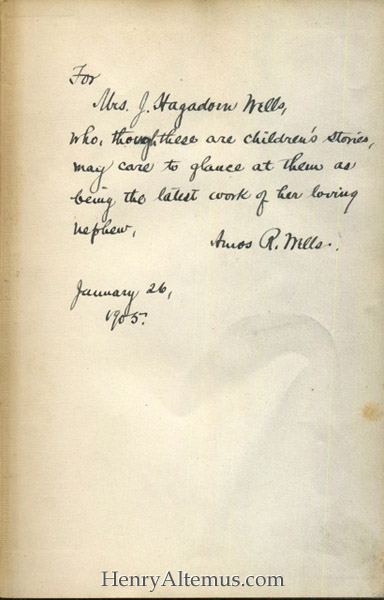 For
Mrs. J. Hagadorn Wells,
who, though these are children's stories,
may care to glance at them as
being the latest work of her loving
nephew,
Amos R. Wells.
January 26,
1905.
HenryAltemus.com